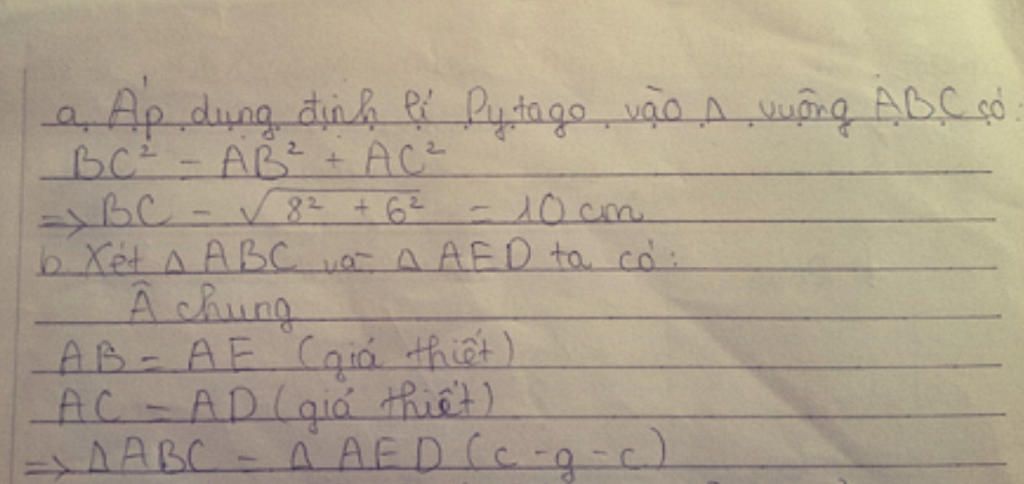 a. Áp dụng định lí Pytago vào Δ vuông ABC có:
BC² = AB² + AC²
=> BC = √8² + 6² = 10 cm
b Xét Δ ABC và Δ AED ta có:
Â chung
AB = AE (giả thiết)
AC = AD (giả thiết)
=> Δ ABC = Δ AED (c-g-c)